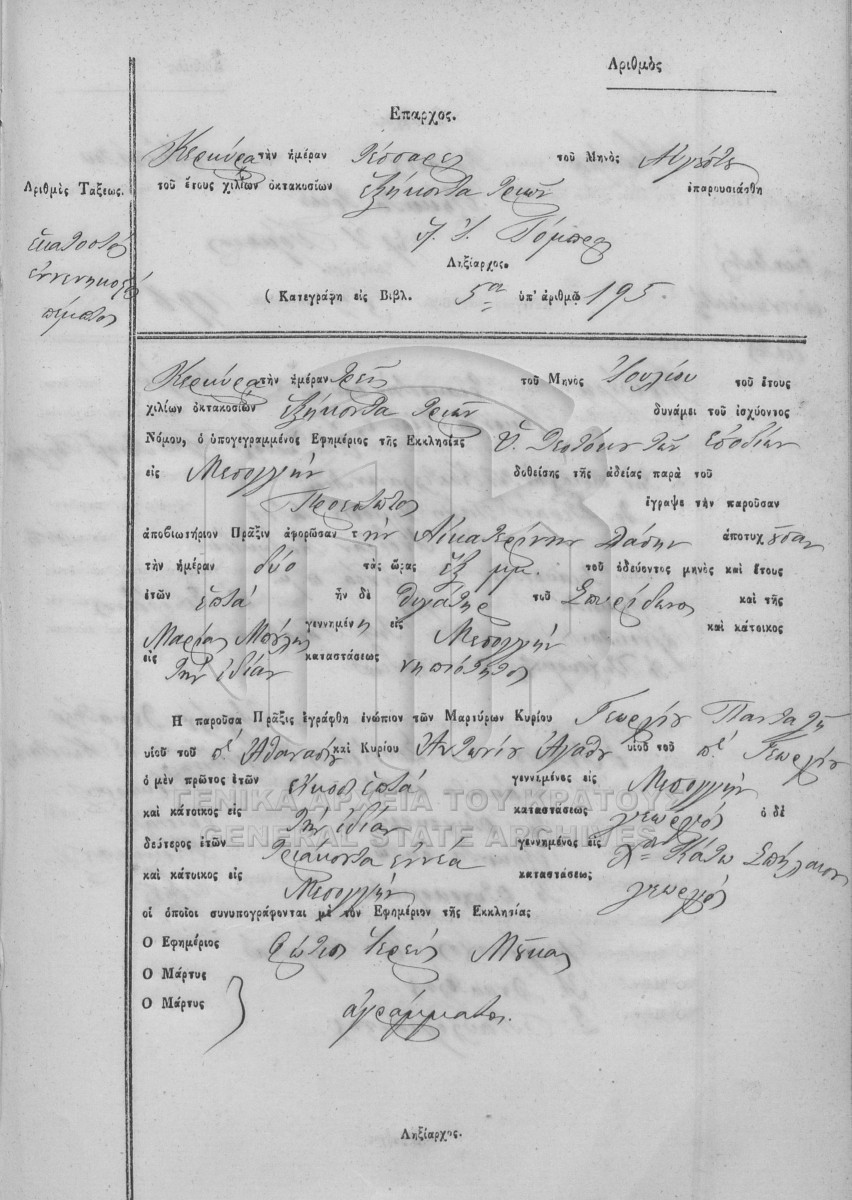 Αριθμὸς
Επαρχος.
Κερκύρα τὴν ἡμέραν τέσσαρες τοῦ Μηνὸς Αὐγούστου
τοῦ ἔτους χιλίων ὀκτακοσίων ἑξήκοντα τριῶν ἐπαρουσιάσθη
Ληξίαρχος.
( Κατεγράφη εἰς Βιβλ. 5ον ὑπ' ἀριθμῷ 195.
Αριθμὸς Τάξεως.
ἑκατοστὸς
ἐννενηκοστὸς
πέμπτος
Κερκύρα τὴν ἡμέραν τρεῖς τοῦ Μηνὸς Ἰουλίου τοῦ ἔτους
χιλίων ὀκτακοσίων ἑξήκοντα τριῶν δυνάμει τοῦ ἰσχύοντος
Νόμου, ὁ ὑπογεγραμμένος Εφημέριος τῆς Εκκλησίας
εἰς δοθείσης τῆς ἀδείας παρὰ τοῦ
Πρεσβύτου ἔγραψε τὴν παροῦσαν
ἀποβιωτήριον Πρᾶξιν ἀφορῶσαν τὴν Αἰκατερίνην ἀποτυχοῦσαν
τὴν ἡμέραν δύο τὰς ὥρας ἓξ μμ. τοῦ ὁδεύοντος μηνὸς καὶ ἔτους
ἐτῶν ἑπτά ἦν δὲ θυγάτηρ τοῦ Σπυρίδωνος καὶ τῆς
Μαρίας γεννημένη εἰς καὶ κάτοικος
εἰς τὴν ἰδίαν καταστάσεως νηπιότητος
Η παροῦσα Πρᾶξις ἐγράφθη ἐνώπιον τῶν Μαρτύρων Κυρίου Γεωργίου
υἱοῦ τοῦ πτ Ἀθανασίου καὶ Κυρίου Ἀντωνίου Ἀγάθου υἱοῦ τοῦ πτ Γεωργίου
ὁ μὲν πρῶτος ἐτῶν εἴκοσι ἑπτά γεννημένος εἰς
καὶ κάτοικος εἰς τὴν ἰδίαν καταστάσεως γεωργός ὁ δὲ
δεύτερος ἐτῶν τριάκοντα ἐννέα γεννημένος εἰς Κάτω Σπήλαιον
καὶ κάτοικος εἰς καταστάσεως γεωργός
οἱ ὁποῖοι συνυπογράφονται μὲ τὸν Εφημέριον τῆς Εκκλησίας
Ο Εφημέριος Φώτιος Ἱερεύς
Ο Μάρτυς
Ο Μάρτυς } ἀγράμματοι.
Ληξίαρχος.
ΓΕΝΙΚΑ ΑΡΧΕΙΑ ΤΟΥ ΚΡΑΤΟΥΣ
GENERAL STATE ARCHIVES